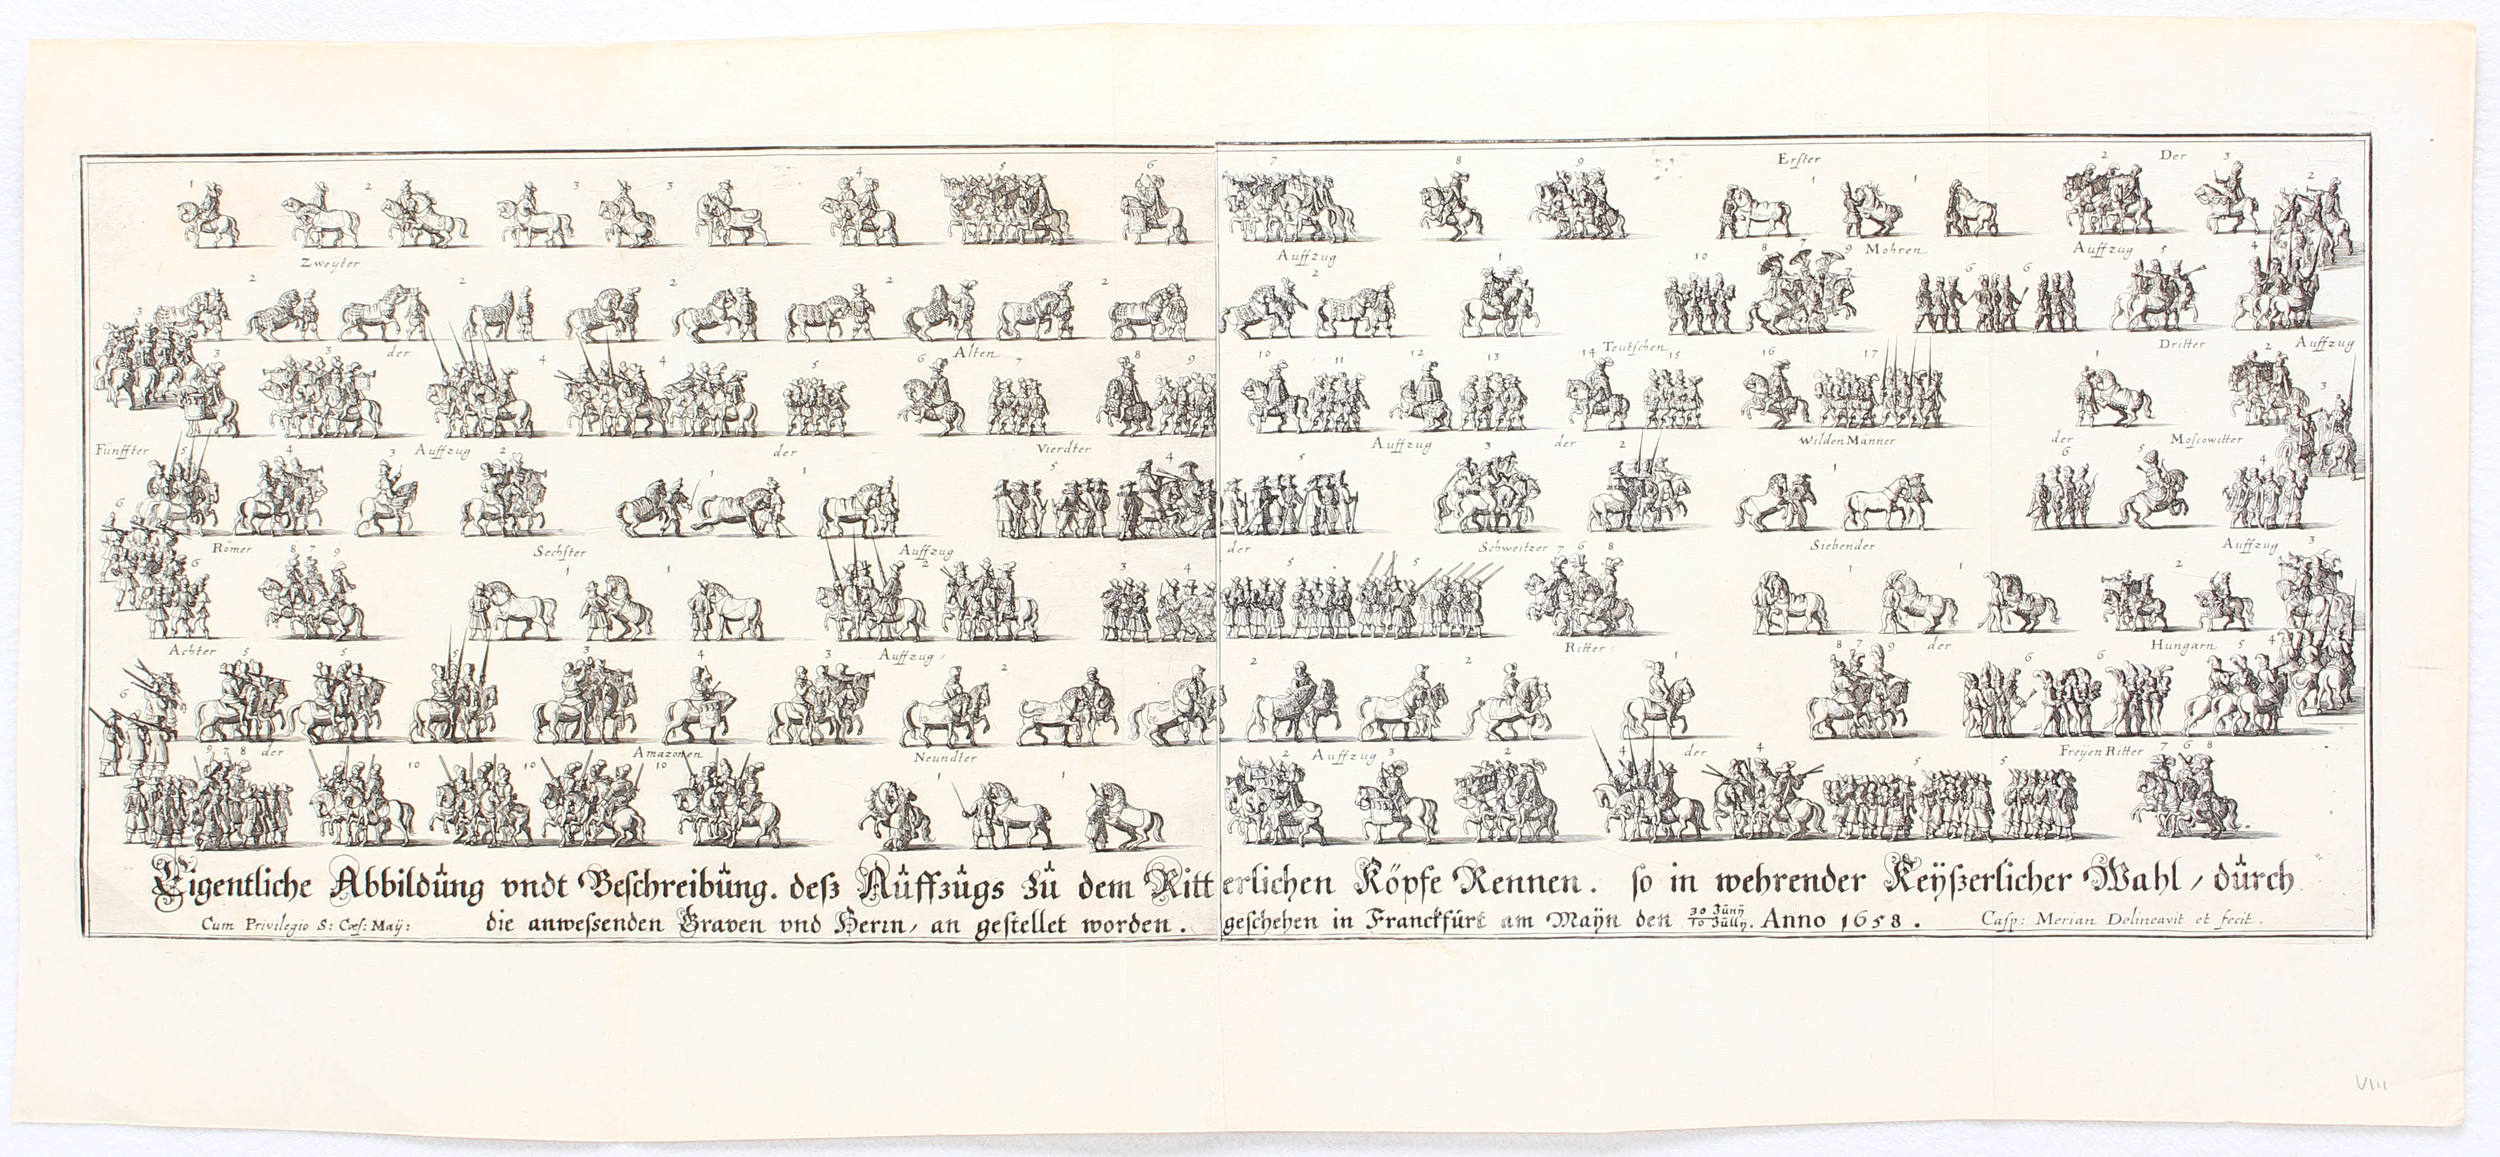 1 2 3 3 4 5 6 7 8 9 Erster 1 1 2 Der 3 2
Zweÿter Auffzug Mohren Auffzug
3 2 2 2 2 2 2 2 1 10 8 7 9 7 6 6 5 4
der Alten Teutschen Dritter Auffzug
3 3 4 4 5 6 7 8 9 10 11 12 13 14 15 16 17 1 2 3
Fünffter Auffzug der Vierdter Auffzug der Wilden Männer der Moscowitter
6 5 4 3 2 1 1 5 4 5 3 2 1 6 5 4
Römer Sechster Auffzug der Schweitzer Siebender Auffzug
6 8 7 9 1 1 2 3 4 5 5 7 6 8 1 1 2 3
Achter Auffzug, Ritter: der Hungarn
6 5 5 5 3 4 3 2 2 2 2 1 8 7 9 6 6 5 4
der Amazonen Neundter Auffzug der Freÿen Ritter
9 7 8 10 10 10 1 1 2 3 2 4 4 5 5 7 6 8
Eigentliche Abbildŭng vndt Beschreibŭng. desz Aŭffzŭgs zŭ dem Ritterlichen Köpfe Rennen. so in wehrender Keÿszerlicher Wahl / dŭrch
die anwessenden Graven vnd Herrn, an gestellet worden. geschehen in Franckfŭrt am Maÿn den 30 Jŭnÿ / 10 Jŭlly. Anno 1658.
Cum Privilegio S: Cæs: Maÿ:
Casp: Merian Delineavit et fecit.
VIII